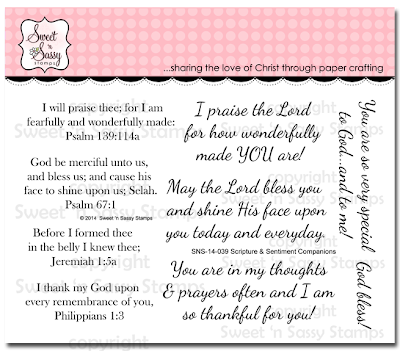 Sweet 'n Sassy
stamps
...sharing the love of Christ through paper crafting
I will praise thee; for I am
fearfully and wonderfully made:
Psalm 139:114a
God be merciful unto us,
and bless us; and cause his
face to shine upon us; Selah.
Psalm 67:1
© 2014 Sweet 'n Sassy Stamps
Before I formed thee
in the belly I knew thee;
Jeremiah 1:5a
I thank my God upon
every remembrance of you,
Philippians 1:3
I praise the Lord
for how wonderfully
made YOU are!
May the Lord bless you
and shine His face upon
you today and everyday.
SNS-14-039 Scripture & Sentiment Companions
You are in my thoughts
& prayers often and I am
so thankful for you!
You are so very special
to God...and to me!
God bless!
copyright
Sweet 'n Sassy Stamps